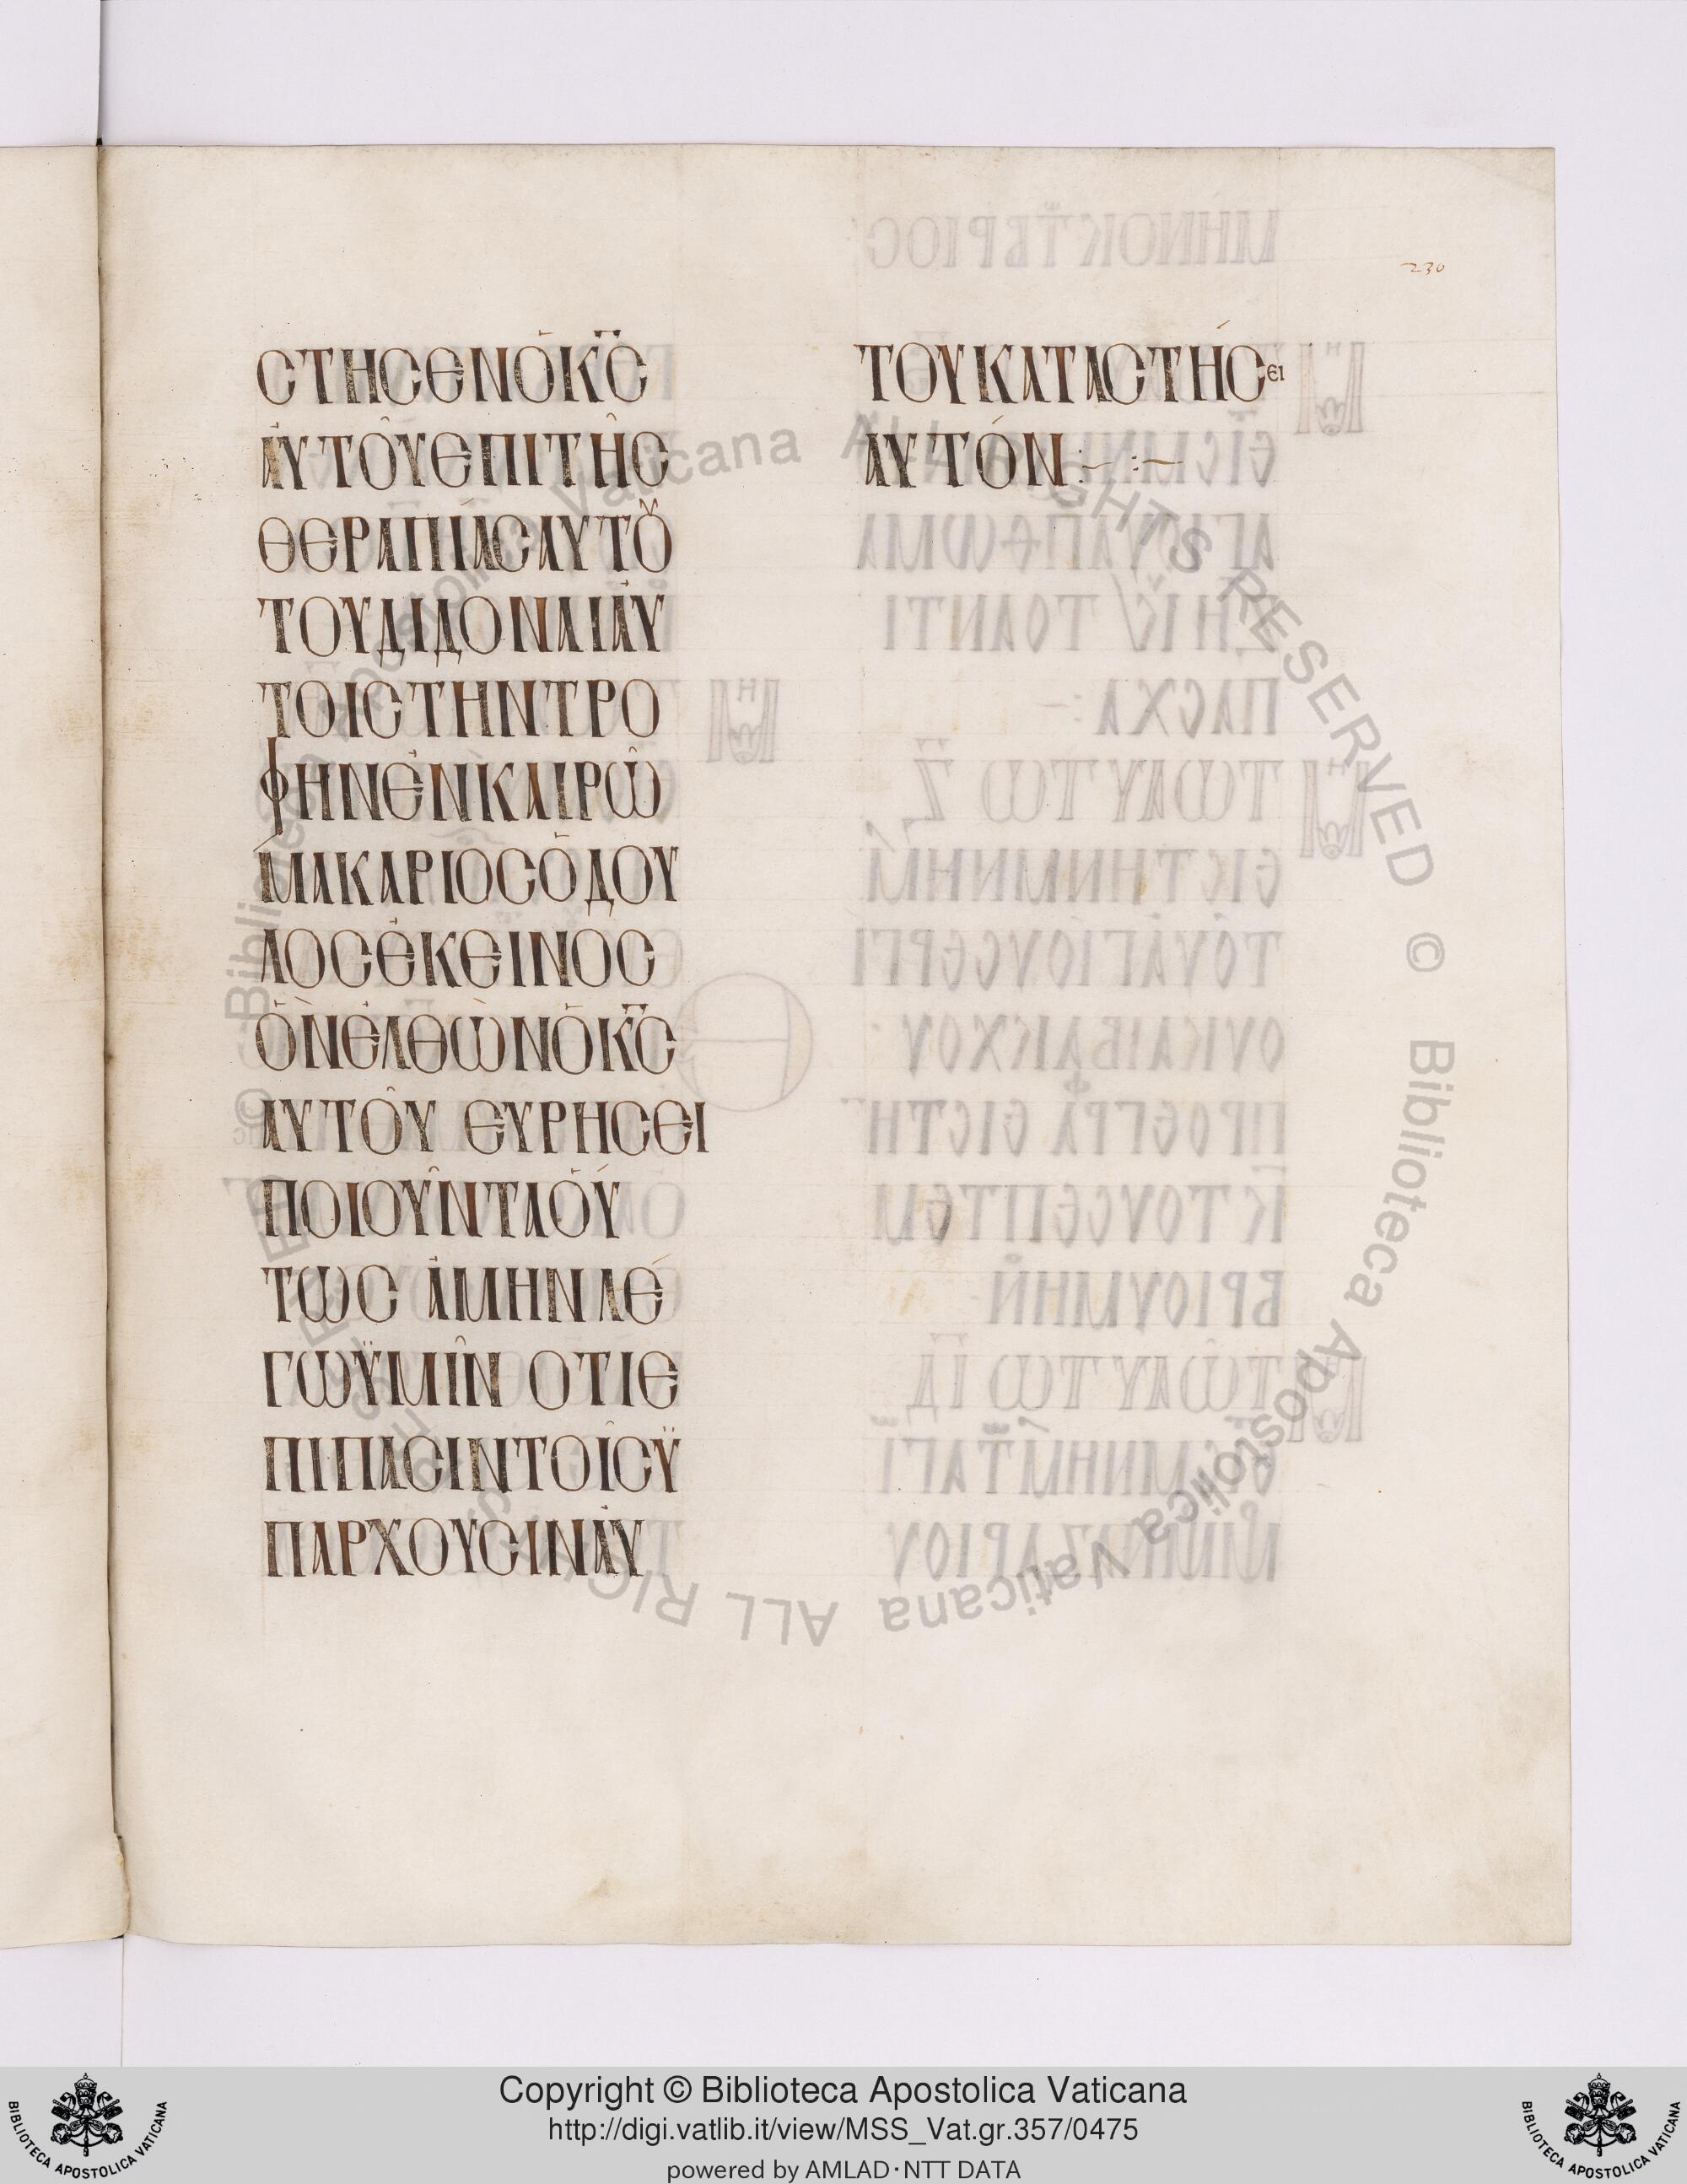 230
ϹΤΗϹΕΝὉΚ̅Ϲ̅
ἈΥΤΟῦΕΠΙΤῆϹ
ΘΕΡΑΠΙΑϹΑΥΤȢ
ΤΟΥΔΙΔΟΝΑΙἈΥ
ΤΟΙϹΤΗΝΤΡΟ
ΦΗΝἘΝΚΑΙΡῶ
ΜΑΚΑΡΙΟϹὉΔΟΥ
ΛΟϹἘΚΕΙΝΟϹ
ὋΝἘΛΘῺΝὉΚ̅Ϲ̅
ΑΥΤΟῦ ΕΥΡΗϹΕΙ
ΠΟΙΟῦΝΤΑΟὝ
ΤΩϹ ἈΜΗΝΛΈ
ΓΩΫΜῖΝ ΟΤΙΕ
ΠΙΠΑϹΙΝΤΟῖϹΫ
ΠΑΡΧΟΥϹΙΝἈΥ
ΤΟΥΚΑΤΑϹΤΉϹει
ΑΥΤΌΝ:~ :~
© Biblioteca Apostolica Vaticana ALL RIGHTS RESERVED © Biblioteca Apostolica Vaticana ALL RIGHTS RESERVED
Copyright © Biblioteca Apostolica Vaticana
http://digi.vatlib.it/view/MSS_Vat.gr.357/0475
powered by AMLAD·NTT DATA
BIBLIOTECA APOSTOLICA VATICANA
BIBLIOTECA APOSTOLICA VATICANA